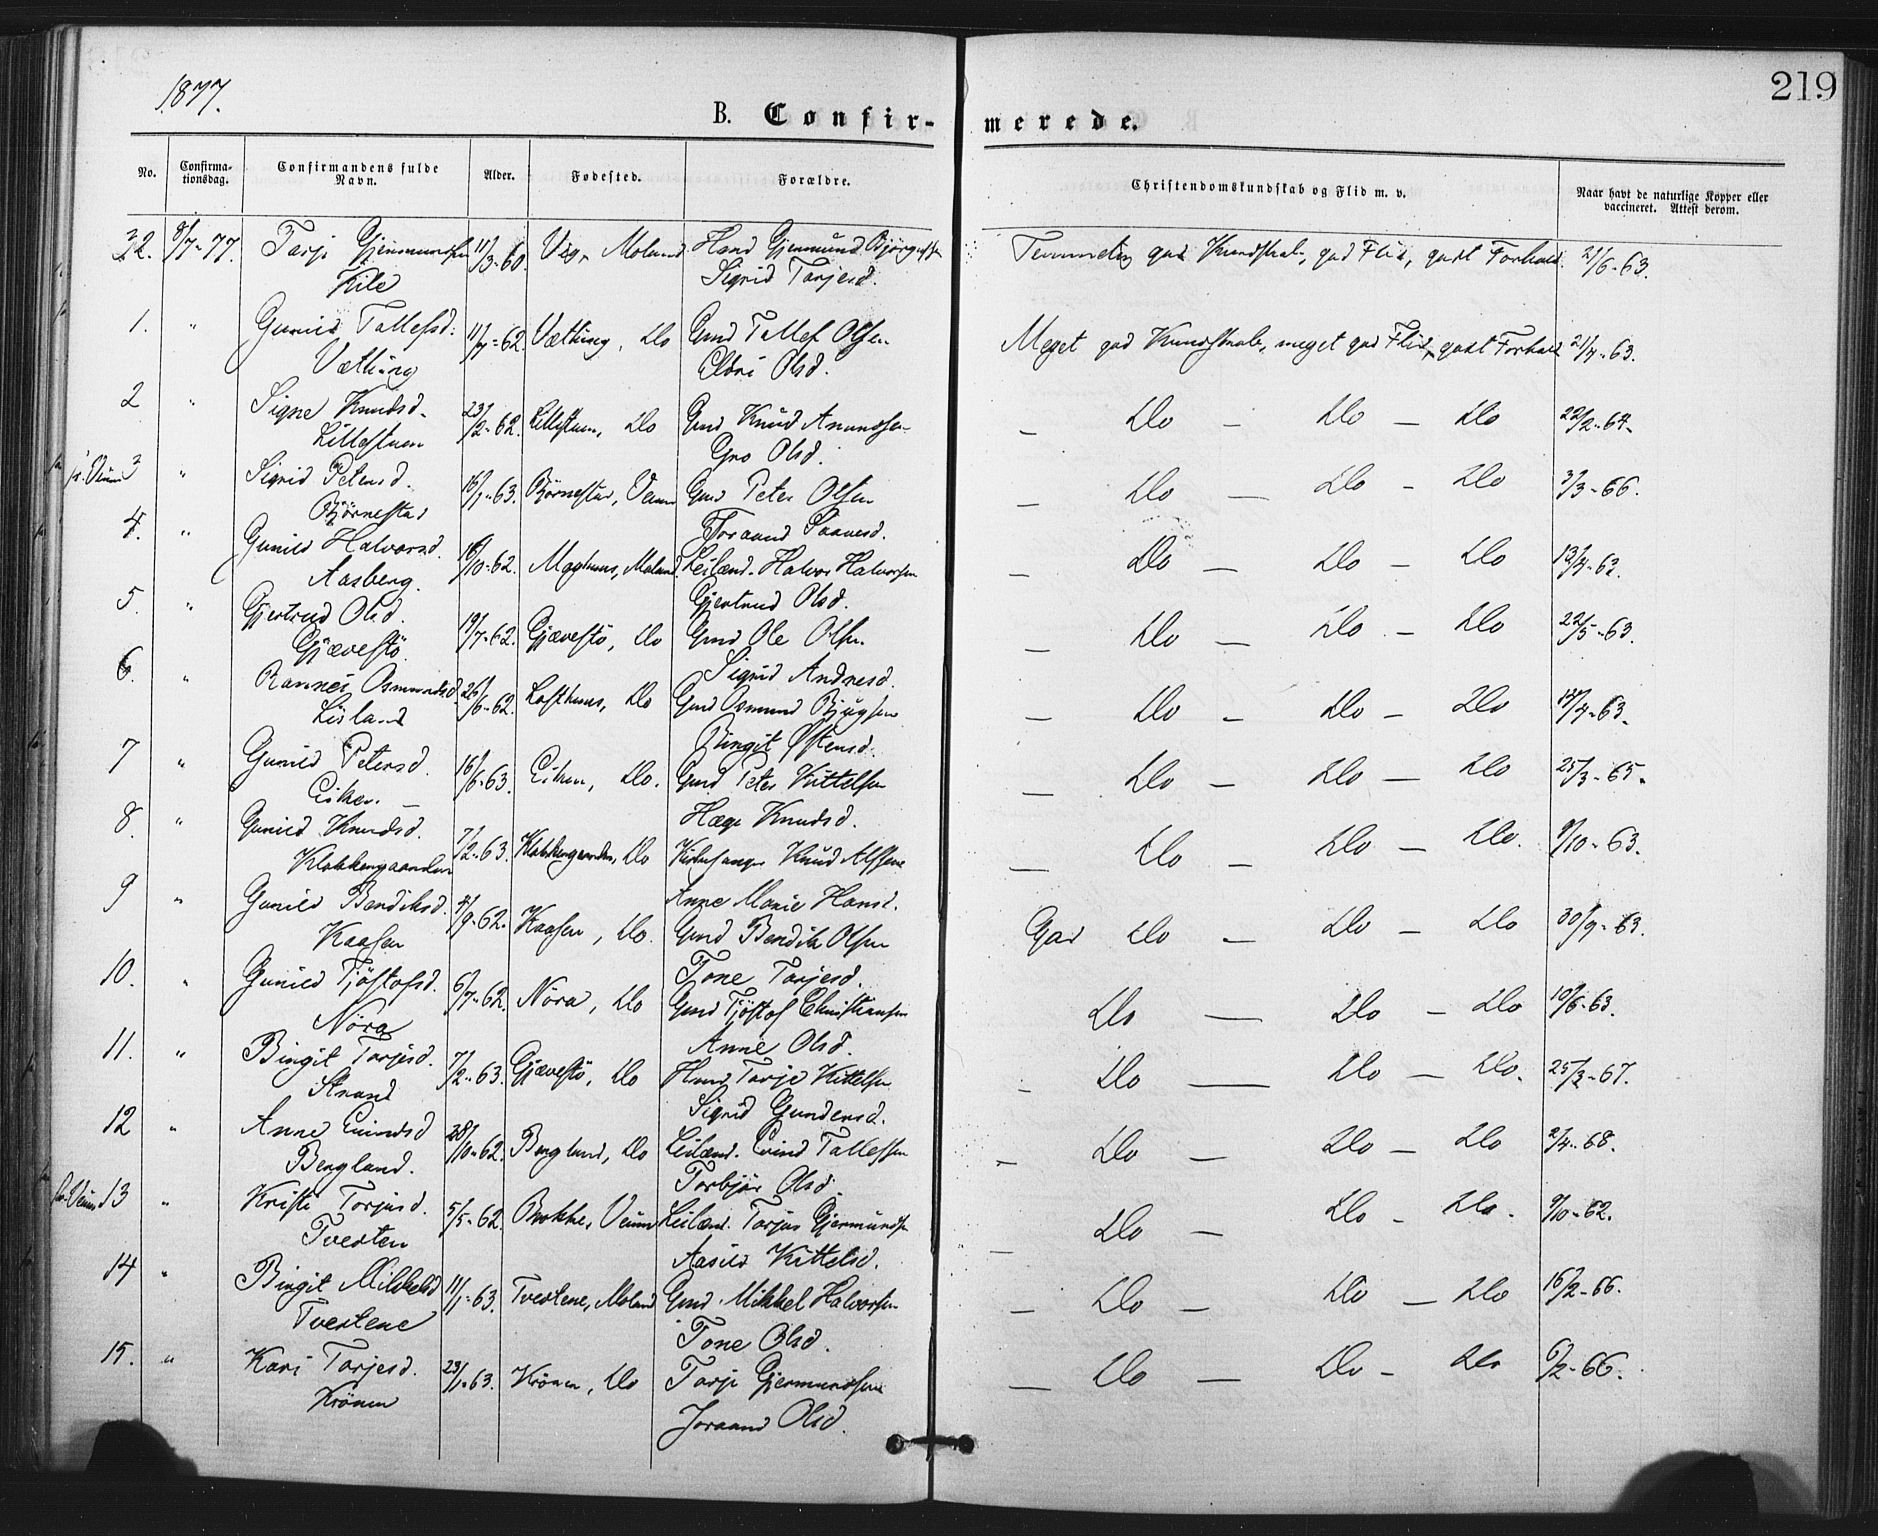 1877.
219
B. Confir-
merede.
No.
Confirma-
tionsdag.
Confirmandens fulde
Navn.
Alder.
Fødested.
Forældre.
Christendomskundskab og Flid m. v.
Naar havt de naturlige Kopper eller
vaccineret. Attest derom.
32. 9/7-77. Tarje Gjermundsen 11/3-60. Moland
Kile Sigrid Tarjesd.
god Kundskab, god Flid, godt Forhold. 21/6-63.
1. " Gunild Tallefsd. 11/7-62. Vætting, Do Gmd Tallef Olsen
Vætting Olsd.
Meget god Kundskab, meget god Flid, godt Forhold 21/7-63.
2 " Signe Knudsd. 23/2-62. Lillestuen, Do Gmd Knud Anundsen
Lillestuen Gro Olsd.
— Do — Do — Do 22/2-64.
Veum 3 " Sigrid Petersd. 16/1-63. Bjørnestad, Veum Gmd Peter Olsen
Bjørnestad Joraand Saavesd.
— Do — Do — Do 3/3-66.
4. " Gunild Halvorsd. 16/10-62. Moland. Leilænd. Halvor Halvorsen
Aasberg. Gjertrud Olsd.
— Do — Do — Do
5. " Gjertrud Olsd. 19/7-62. Gjævestö, Do Gmd Ole Olsen
Gjævestö. Sigrid Andresd.
— Do — Do — Do 22/5-63.
6. " Osmundsd. 26/6-62. Lofthuus, Do Gmd Osmund
Lisland Birgit Østensd.
— Do — Do — Do
7 " Gunild Petersd. 16/6-63. Do. Gmd Peter Kittelsen
Hæge Knudsd.
— Do — Do — Do 25/3-65.
8. " Gunild Knudsd. 7/2-63. Klokkergaarden, Do Kirkesanger Knud
Klokkergaarden Anne Marie Hansd.
— Do — Do — Do. 9/10-63.
9 " Gunild Bendiksd. 4/9-62. Kaasen, Do. Gmd Bendik Olsen
Kaasen Tone Tarjesd.
God Do — Do — Do 30/9-63.
10. " Gunild Tjöstofsd. 6/7-62. Nöra, Do Gmd Tjöstof Christiansen
Nöra Anne Olsd.
Do — Do — Do 10/6-63.
11. " Birgit Tarjesd. 7/2-63. Gjævestö, Do Tarje Kittelsen
Strand Sigrid Gundersd.
— Do — Do — Do. 25/3-67.
12 " Anne Eivindsd 28/10-62. Bergland, Do Leilænd. Eivind Tallefsen
Bergland. Torbjör Olsd.
— Do — Do — Do 2/4-68.
Veum 13 " Torjusd. 5/5-62. Bakke, Veum Leilænd. Torjus Gjermundsen
Tveiten Aasild Kittelsd.
— Do — Do — Do. 9/10-62.
14 " Birgit Mikkelsd 11/1-63. Tveitene, Moland Gmd. Mikkel Halvorsen
Tveitene Tone Olsd.
— Do — Do — Do 16/2-66.
15. " Kari Tarjesd. 23/1-63. Krönen, Do Tarje Gjermundsen
Krönen Joraand Olsd.
— Do — Do — Do 6/2-66.